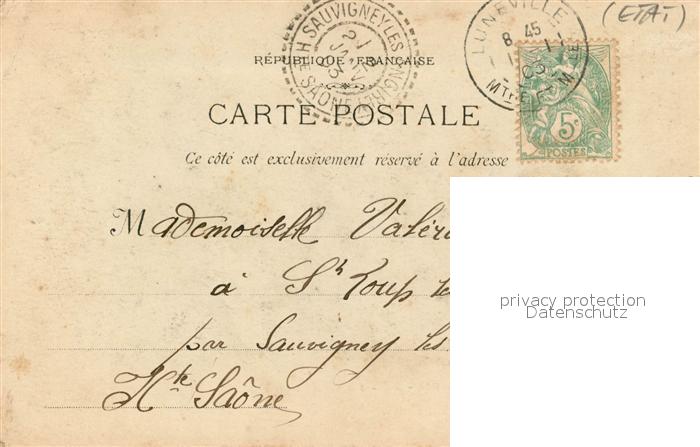 (ETAT)
LUNEVILLE
8 45
03
MTHE ET M
H SAUVIGNEY LES ANGIREY
SAÔNE
RÉPUBLIQUE FRANÇAISE
5c
POSTES
CARTE POSTALE
Ce côté est exclusivement réservé à l'adresse
Mademoiselle Valér
à St Loup
par Sauvigney les
Hte Saône
privacy protection
Datenschutz